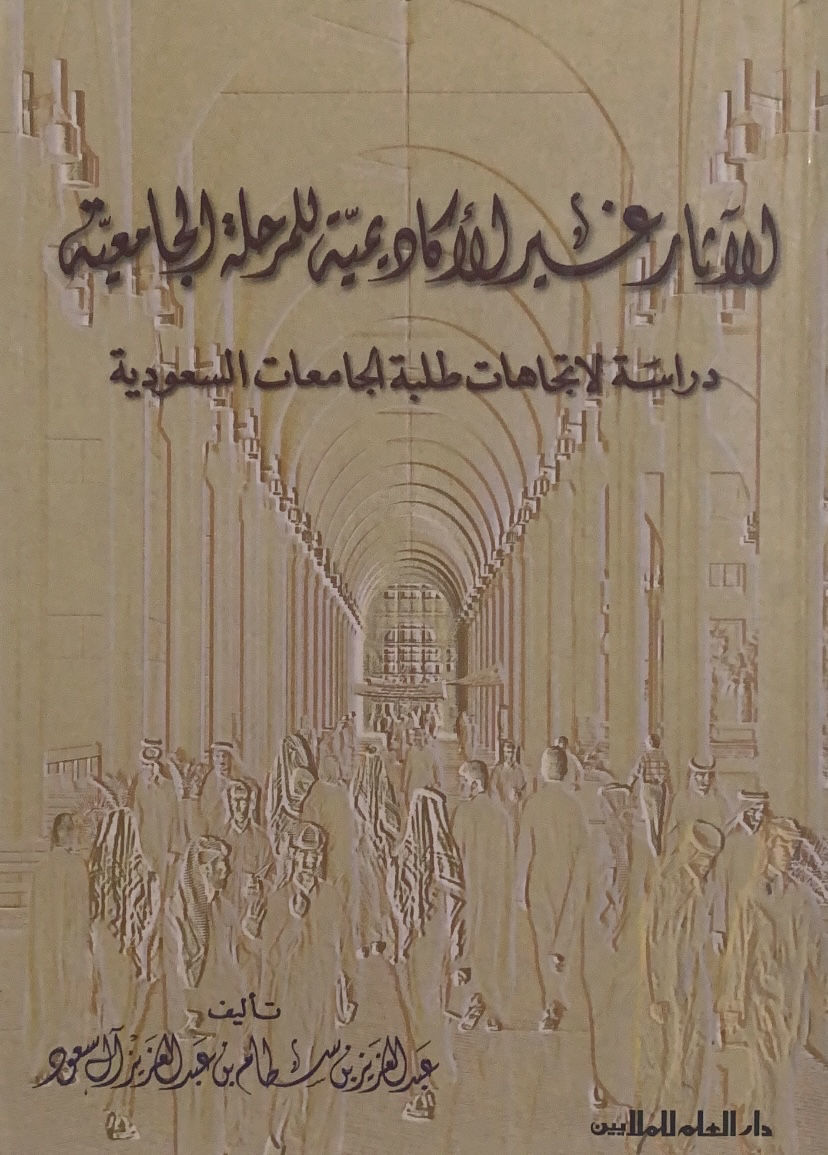 الآثار غير الأكاديميّة للمرحلة الجامعيّة
دراسة لاتجاهات طلبة الجامعات السعودية
تأليف
عبد العزيز بن سطام بن عبد العزيز آل سعود
دار العلم للملايين